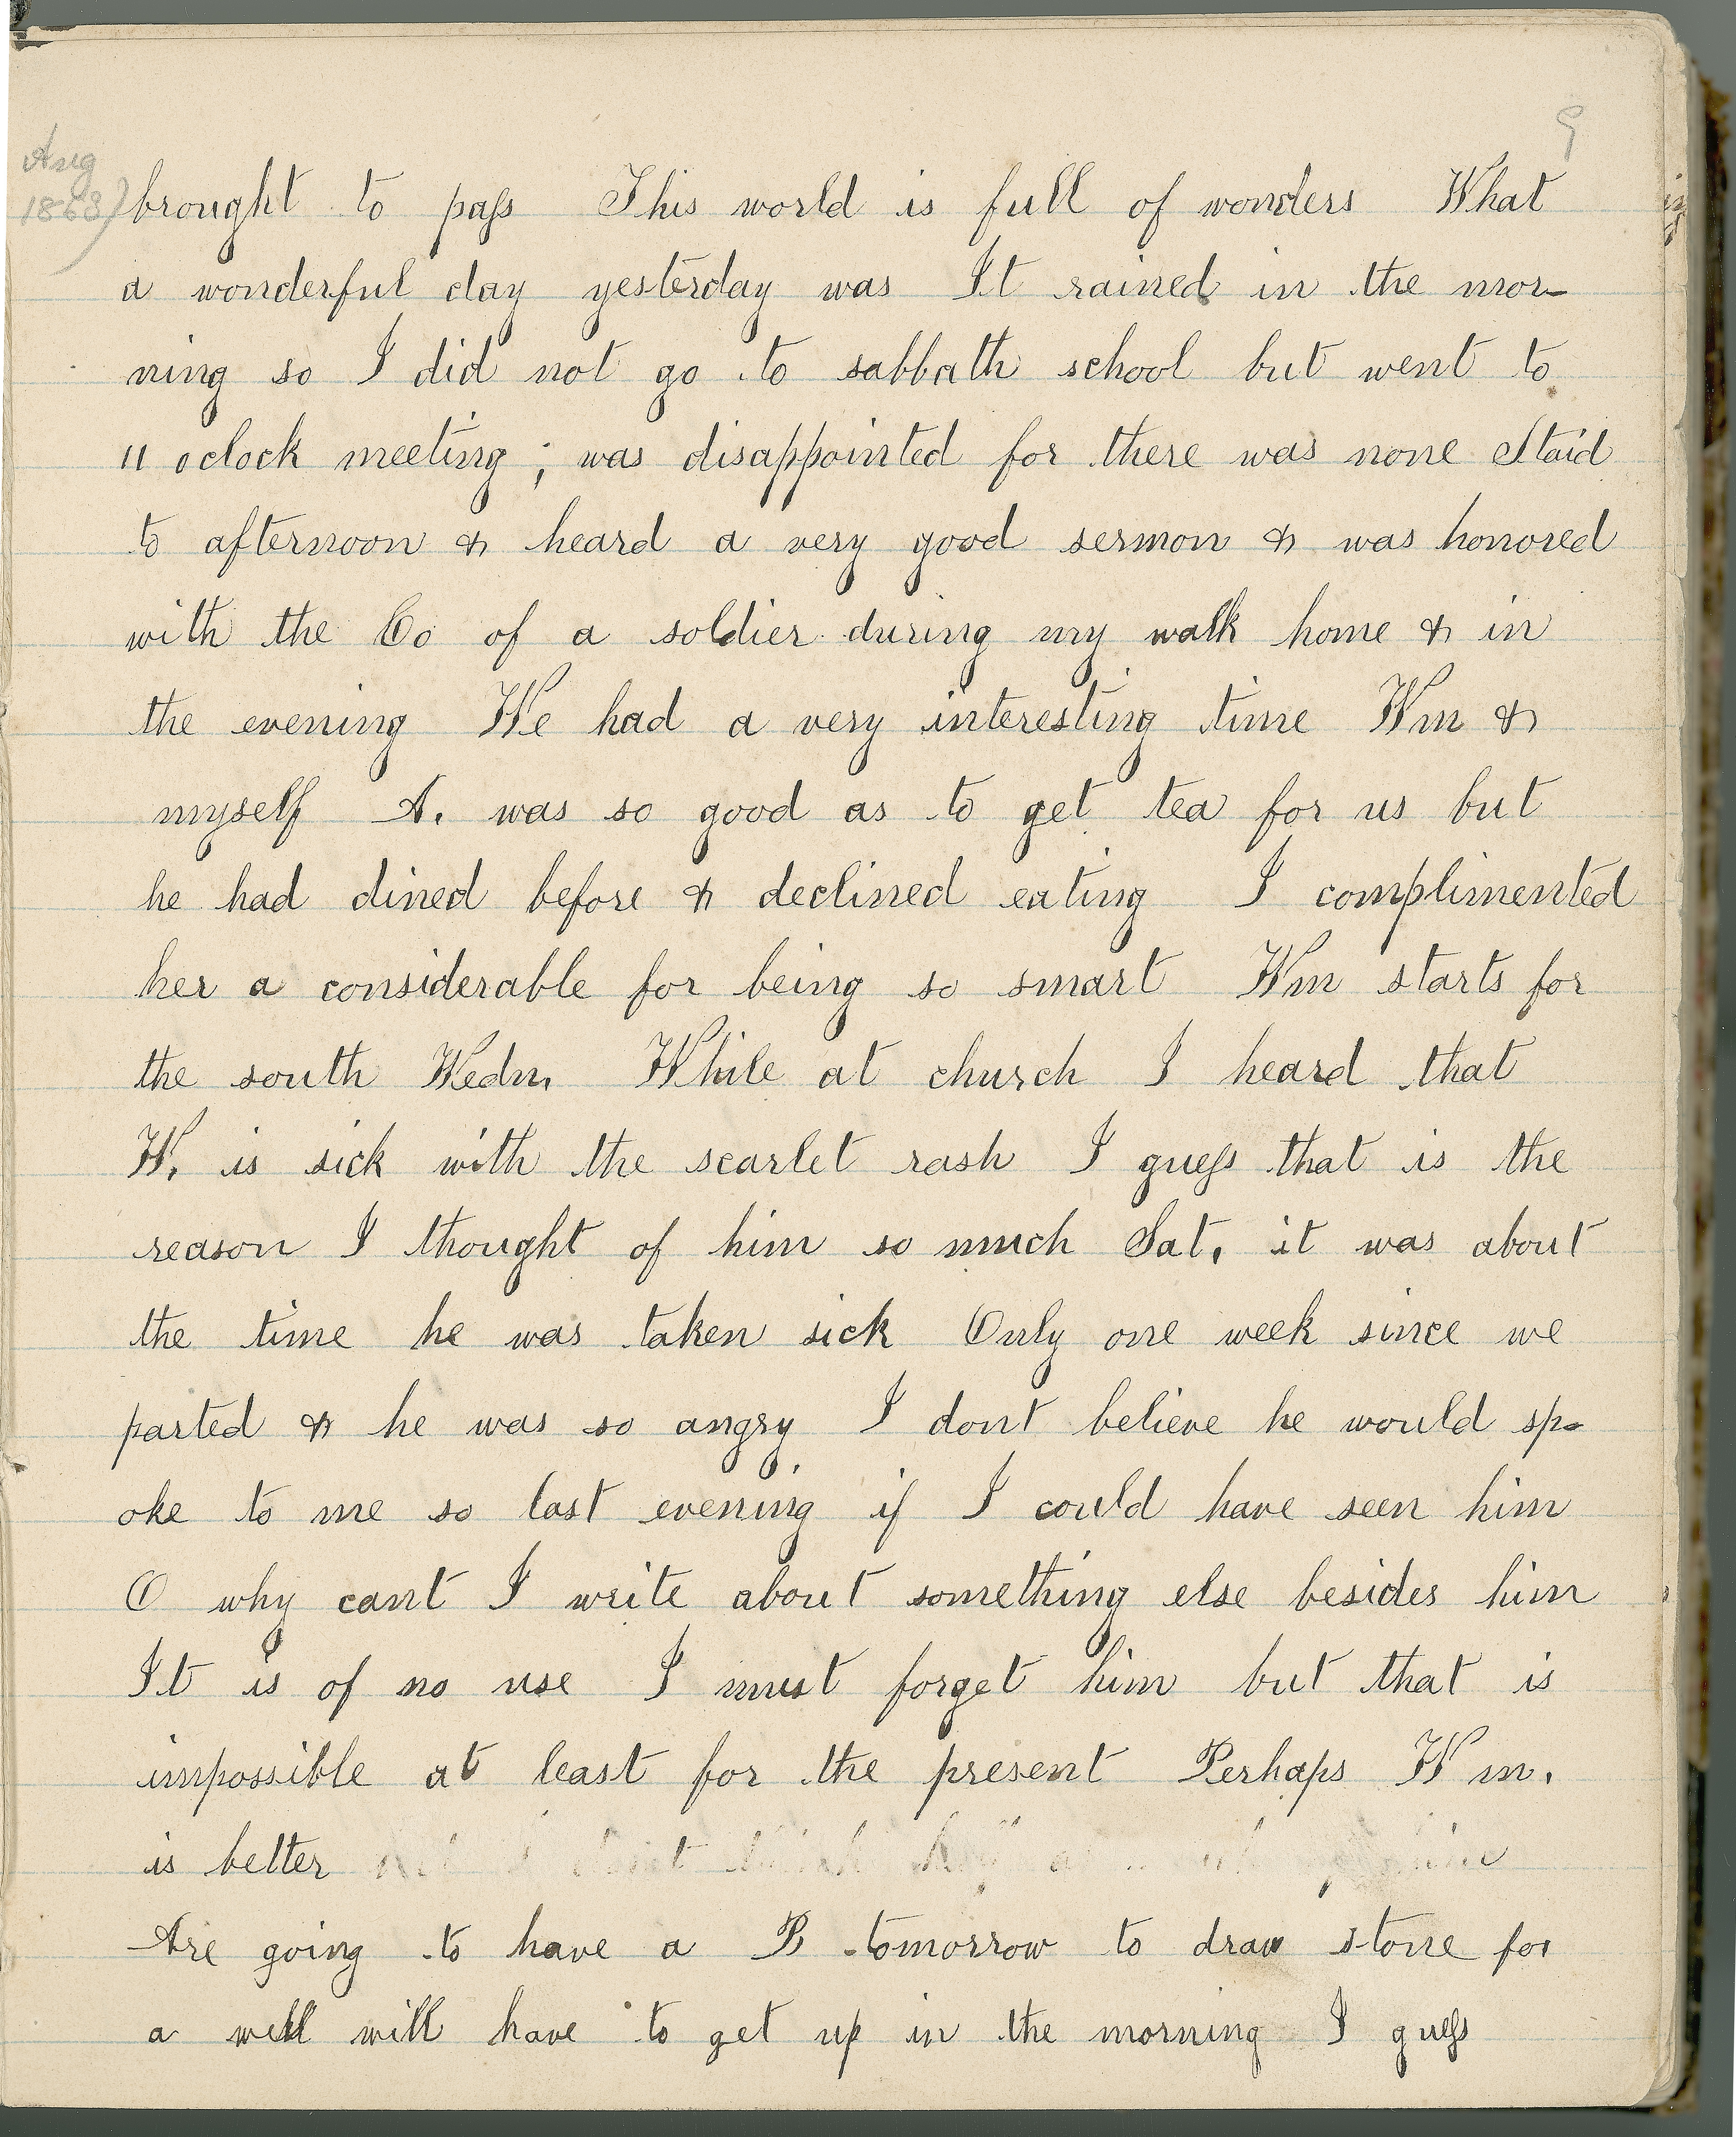 9
Aug
1863)
brought to pass This world is full of wonders What
a wonderful day yesterday was It rained in the mor-
ning so I did not go to sabbath school but went to
11 oclock meeting ; was disappointed for there was none Staid
to afternoon & heard a very good sermon & was honored
with the Co of a soldier during my walk home & in
the evening We had a very interesting time Wm &
myself A. was so good as to get tea for us but
he had dined before & declined eating I complimented
her a considerable for being so smart Wm starts for
the south Wedn. While at church I heard that
W. is sick with the scarlet rash I guess that is the
reason I thought of him so much Sat. it was about
the time he was taken sick Only one week since we
parted & he was so angry I dont believe he would sp-
oke to me so last evening if I could have seen him
O why cant I write about something else besides him
It is of no use I must forget him but that is
impossible at least for the present Perhaps Wm.
is better
Are going to have a B tomorrow to draw stone for
a well will have to get up in the morning I guess